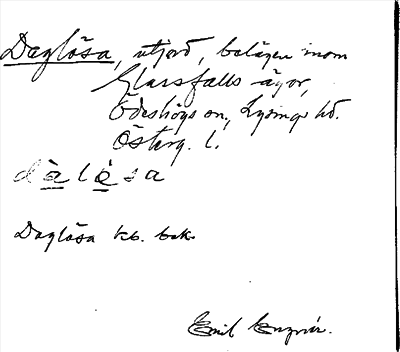 Daglösa, utjord, belägen inom
Glarsfalls ägor,
Ödeshögs sn, Lysings hd.
Österg. l.
dàlèsa
Daglösa kb. bok.
Emil